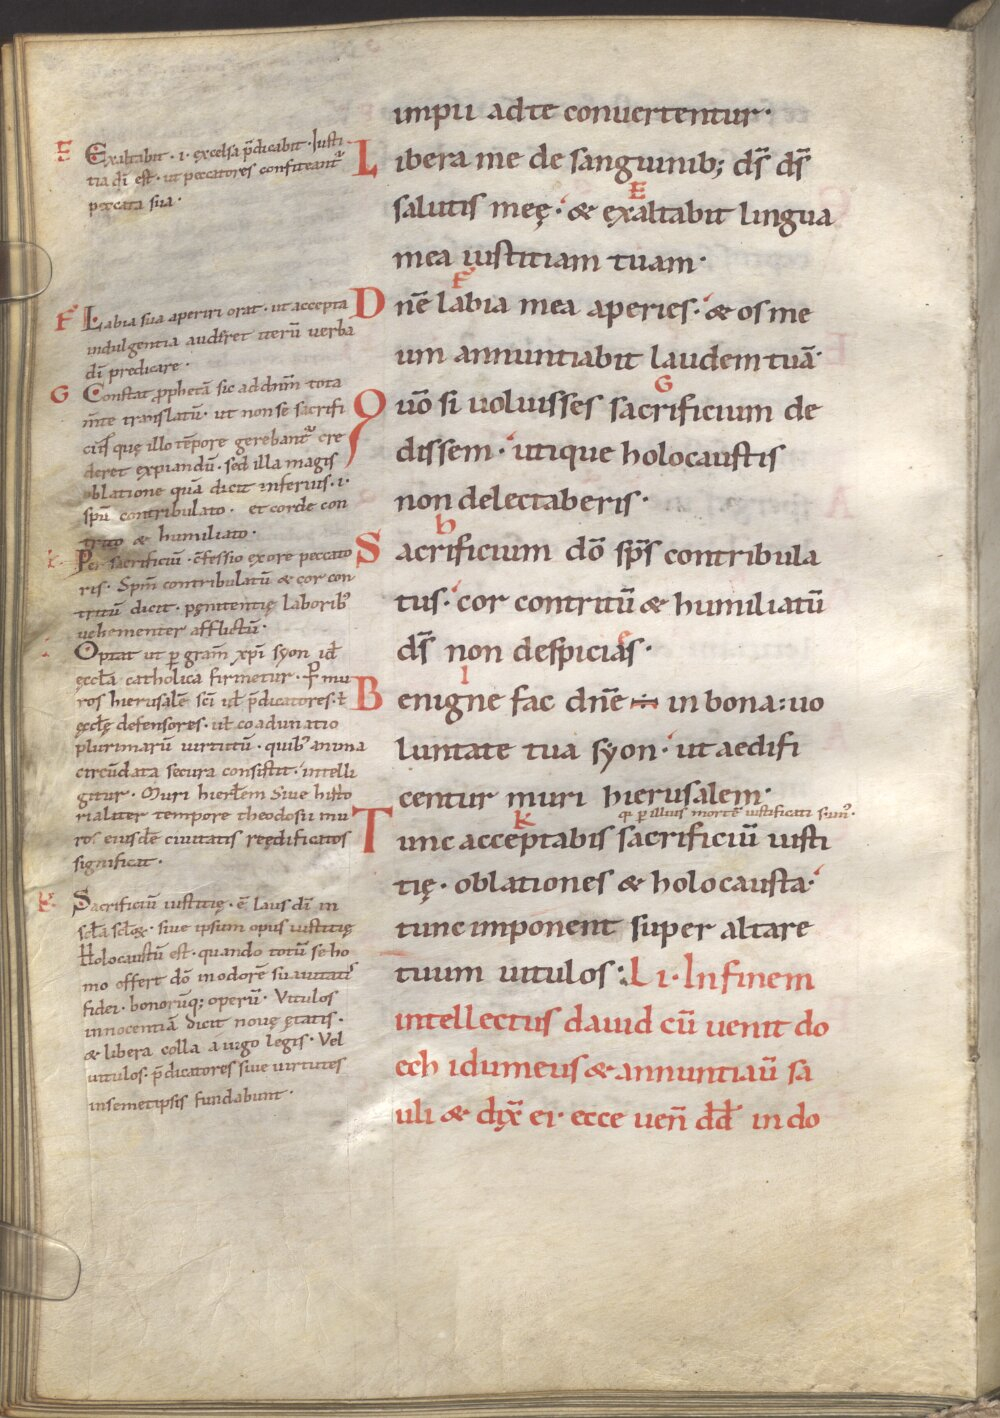 impii ad te conuertentur·
Libera me de sanguinib; ds̄ ds̄
salutis meę· & ęxaltabit lingua
mea iustitiam tuam·
Dnē labia mea aperies· & os me
um annuntiabit laudem tuā·
Quō si uoluisses sacrificium de
dissem· utique holocaustis
non delectaberis·
Sacrificium dō sp̄s contribula
tus· cor contritū & humiliatū
ds̄ non despicias·
Benigne fac dnē in bona uo
luntate tua syon· ut aedifi
centur muri hierusalem·
qi p illius mortē iustificati sunt·
Tunc acceptabis sacrificiū iusti
tię· oblationes & holocausta·
tunc imponent super altare
tuum uitulos: LI· In finem
intellectus dauid cū uenit do
ech idumeus & annuntiaū sa
uli & dix̄ ei· ecce ueñ dd̄ in do
E Exaltabit· i· excelsa p̄dicabit· Iusti
tia dī est· ut peccatores confiteant᷑
peccata sua·
F Labia sua aperiri orat· ut accepta
indulgentia audīret iterū uerba
dī predicare·
G Constat prophetā sic ad dnm̄ tota
m̄te translatū· ut non se sacrifi
ciis quę illo tēpore gerebant᷑ cre
deret expiandū· sed illa magis
oblatione quā dicit inferius· i·
spū contribulato· et corde con
trito & humiliato·
Per sacrificiū· c̄fessio ex ore peccato
ris· Spm̄ contribulatū & cor con
tritū dicit· pęnitentię laborib;
uehementer afflictū·
Optat ut p gram̄ xp̄i syon id
ęccła catholica firmetur· P mu
ros hierusalē sci uł p̄dicatores· ł
ęccłę defensores· uł coadunatio
plurimarū uirtutū· quib; anima
circūdata secura consistit· intelli
gitur· Muri hierłem siue histo
rialiter tempore theodosii mu
ros eiusdē ciuitatis reędificatos
significat·
K Sacrificiū iustitię· ē laus dī in
scła scłoꝝ· siue ipsum opus iustitię
Holocaustū est· quando totū se ho
mo offert dō in odorē suauitatis
fidei· bonorūq; operū· Vitulos
innocentiā dicit nouę ętatis·
& libera colla a iugo legis· Vel
uitulos· p̄dicatores siue uirtutes
in semetipsis fundabunt·